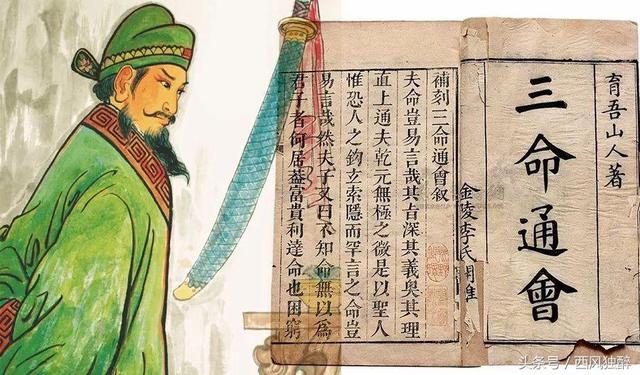 育吾山人著
三命通會
金陵李氏
補刻三命通會叙
夫命豈易言哉其旨深其義奥其理
直上通夫乾元無極之微是以聖人
惟恐人之鈎玄索隱而罕言之命豈
易言哉然夫子又曰不知命無以爲
君子者何居葢富貴利達命也困窮
头条号 / 西风独醉